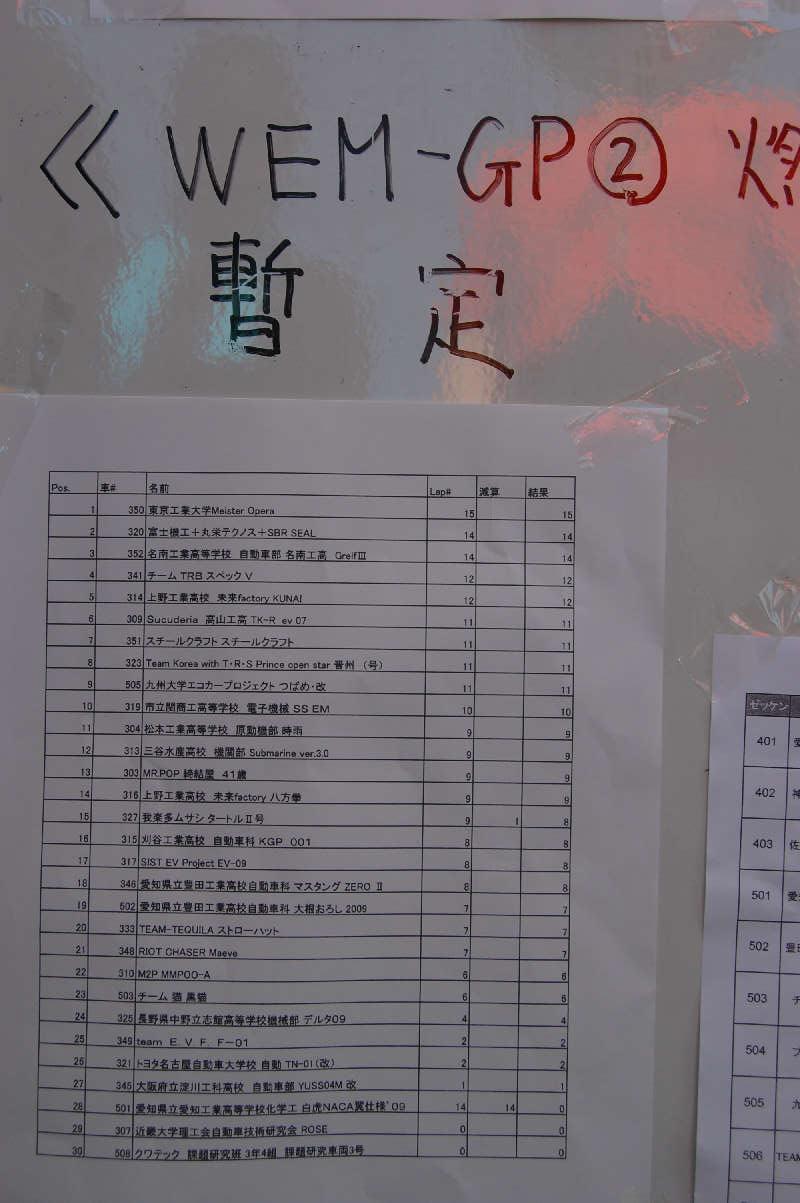 ≪ WEM-GP②
暫定
Pos. 車# 名前 Lap# 減算 結果
1 350 東京工業大学Meister Opera 15 15
2 320 富士機工＋丸栄テクノス＋SBR SEAL 14 14
3 352 名南工業高等学校 自動車部 名南工高 GreifⅢ 14 14
4 341 チーム TRB スペック V 12 12
5 314 上野工業高校 未来factory KUNAI 12 12
6 309 Sucuderia 高山工高 TK-R ev 07 11 11
7 351 スチールクラフト スチールクラフト 11 11
8 323 Team Korea with T・R・S Prince open star 晋州 （号） 11 11
9 505 九州大学エコカープロジェクト つばめ・改 11 11
10 319 市立関商工高等学校 電子機械 SS EM 10 10
11 304 松本工業高等学校 原動機部 時雨 9 9
12 313 三谷水産高校 機関部 Submarine ver.3.0 9 9
13 303 MR.POP 締結屋 41歳 9 9
14 316 上野工業高校 未来factory 八方拳 9 9
15 327 我楽多ムサシ タートルⅡ号 9 1 8
16 315 刈谷工業高校 自動車科 KGP 001 8 8
17 317 SIST EV Project EV-09 8 8
18 346 愛知県立豊田工業高校自動車科 マスタング ZERO Ⅱ 8 8
19 502 愛知県立豊田工業高校自動車科 大根おろし 2009 7 7
20 333 TEAM-TEQUILA ストローハット 7 7
21 348 RIOT CHASER Maeve 7 7
22 310 M2P MMPOO-A 6 6
23 503 チーム 猫 黒猫 6 6
24 325 長野県中野立志館高等学校機械部 デルタ09 4 4
25 349 team E. V. F. F-01 2 2
26 321 トヨタ名古屋自動車大学校 自動 TN-01(改) 2 2
27 345 大阪府立淀川工科高校 自動車部 YUSS04M 改 1 1
28 501 愛知県立愛知工業高等学校化学工 白虎NACA翼仕様'09 14 14 0
29 307 近畿大学理工会自動車技術研究会 ROSE 0 0
30 508 クワテック 課題研究班 3年4組 課題研究車両3号 0 0
ゼッケン
401
402 神
403 佐
501 愛
502 豊
503 チ
504
505 九
506 TEAM